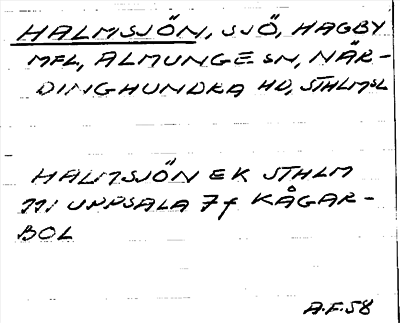 HALMSJÖN, SJÖ, HAGBY
MFL, ALMUNGE SN, NÄR-
DINGHUNDRA HD, STHLMSL
HALMSJÖN EK STHLM
111 UPPSALA 7f KÅGAR-
BOL
A.F.58